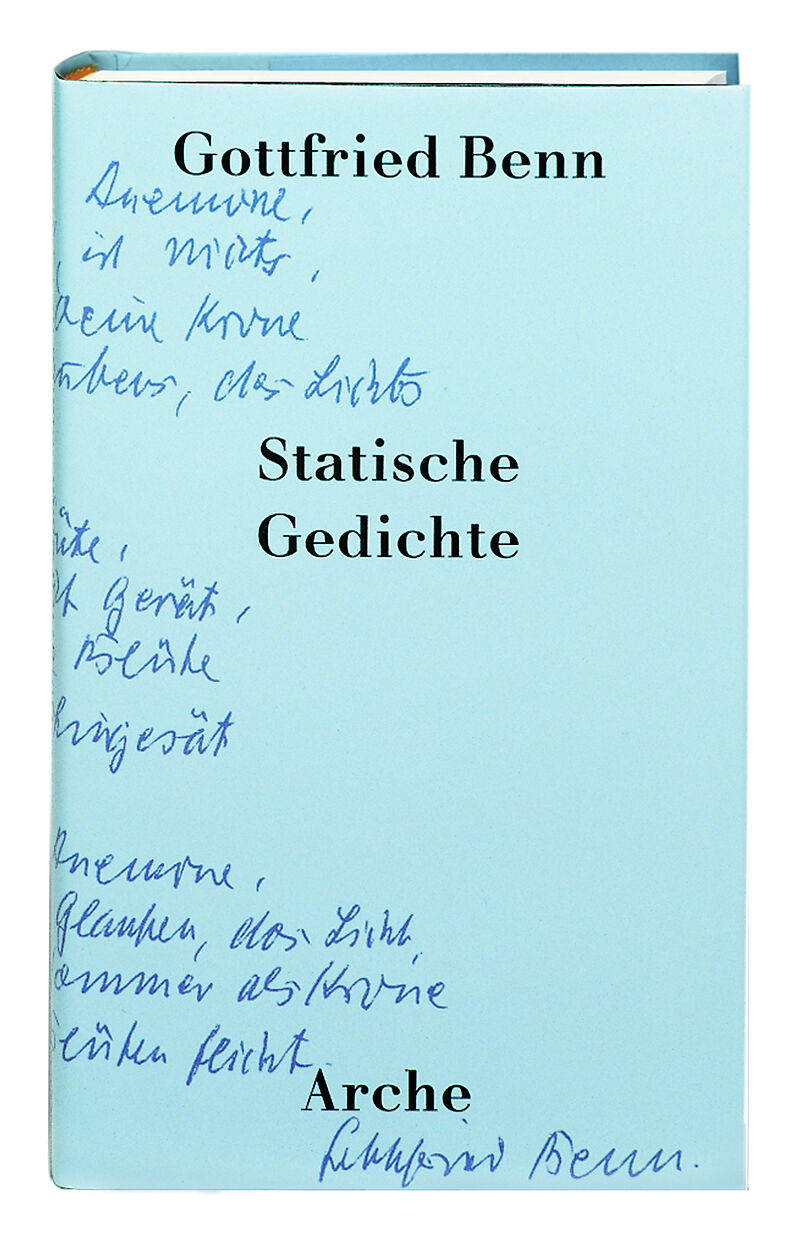 Gottfried Benn
Anemone,
, ist nichts,
deine Krone
aubens, des Lichts
Statische
Gedichte
üte,
Gerät,
Blüte
hingesät
Anemone,
Glauben, das Licht,
ommer als Krone
lüten flicht.
Arche
Gottfried Benn.